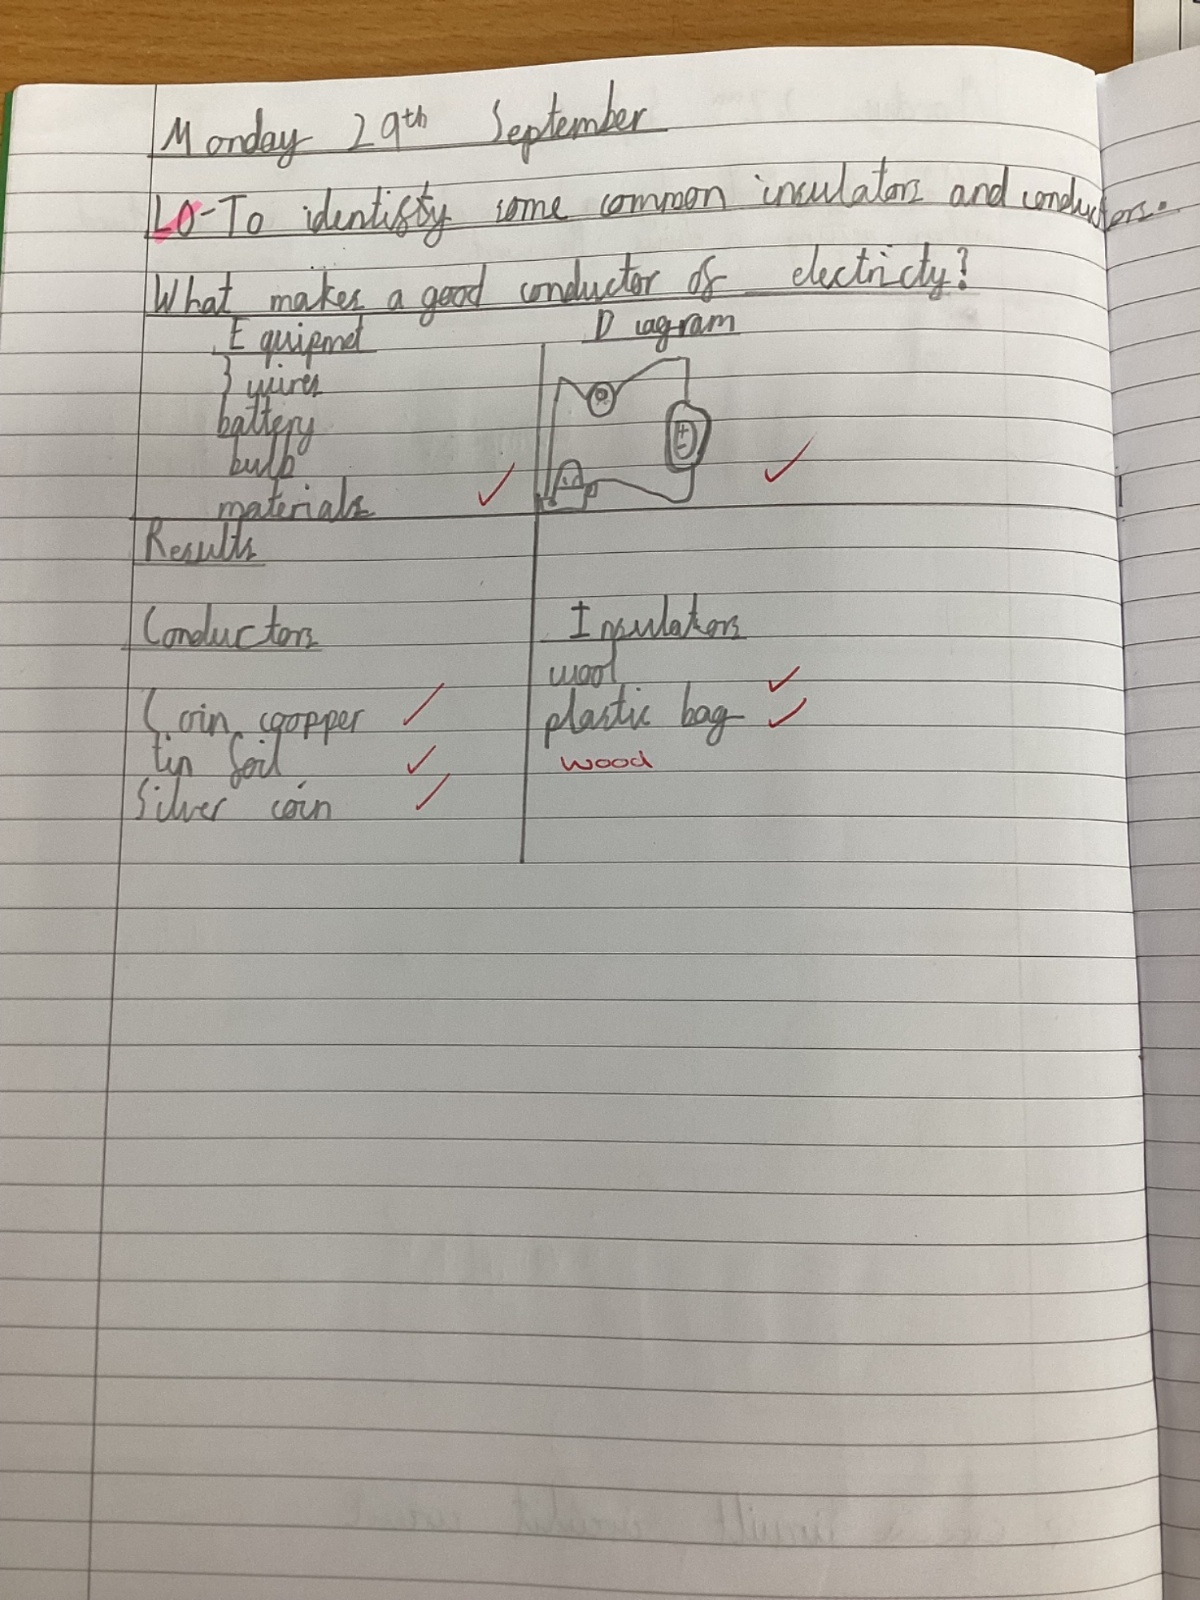 Monday 29th September
LO-To identisty some common insulators and conductors.
What makes a good conductor of electricty?
Equipmet
Diagram
3 wires
battery
bulb
materials
+
-
Results
Conductors
Insulators
wool
Coin copper
plastic bag
tin foil
wood
Silver coin